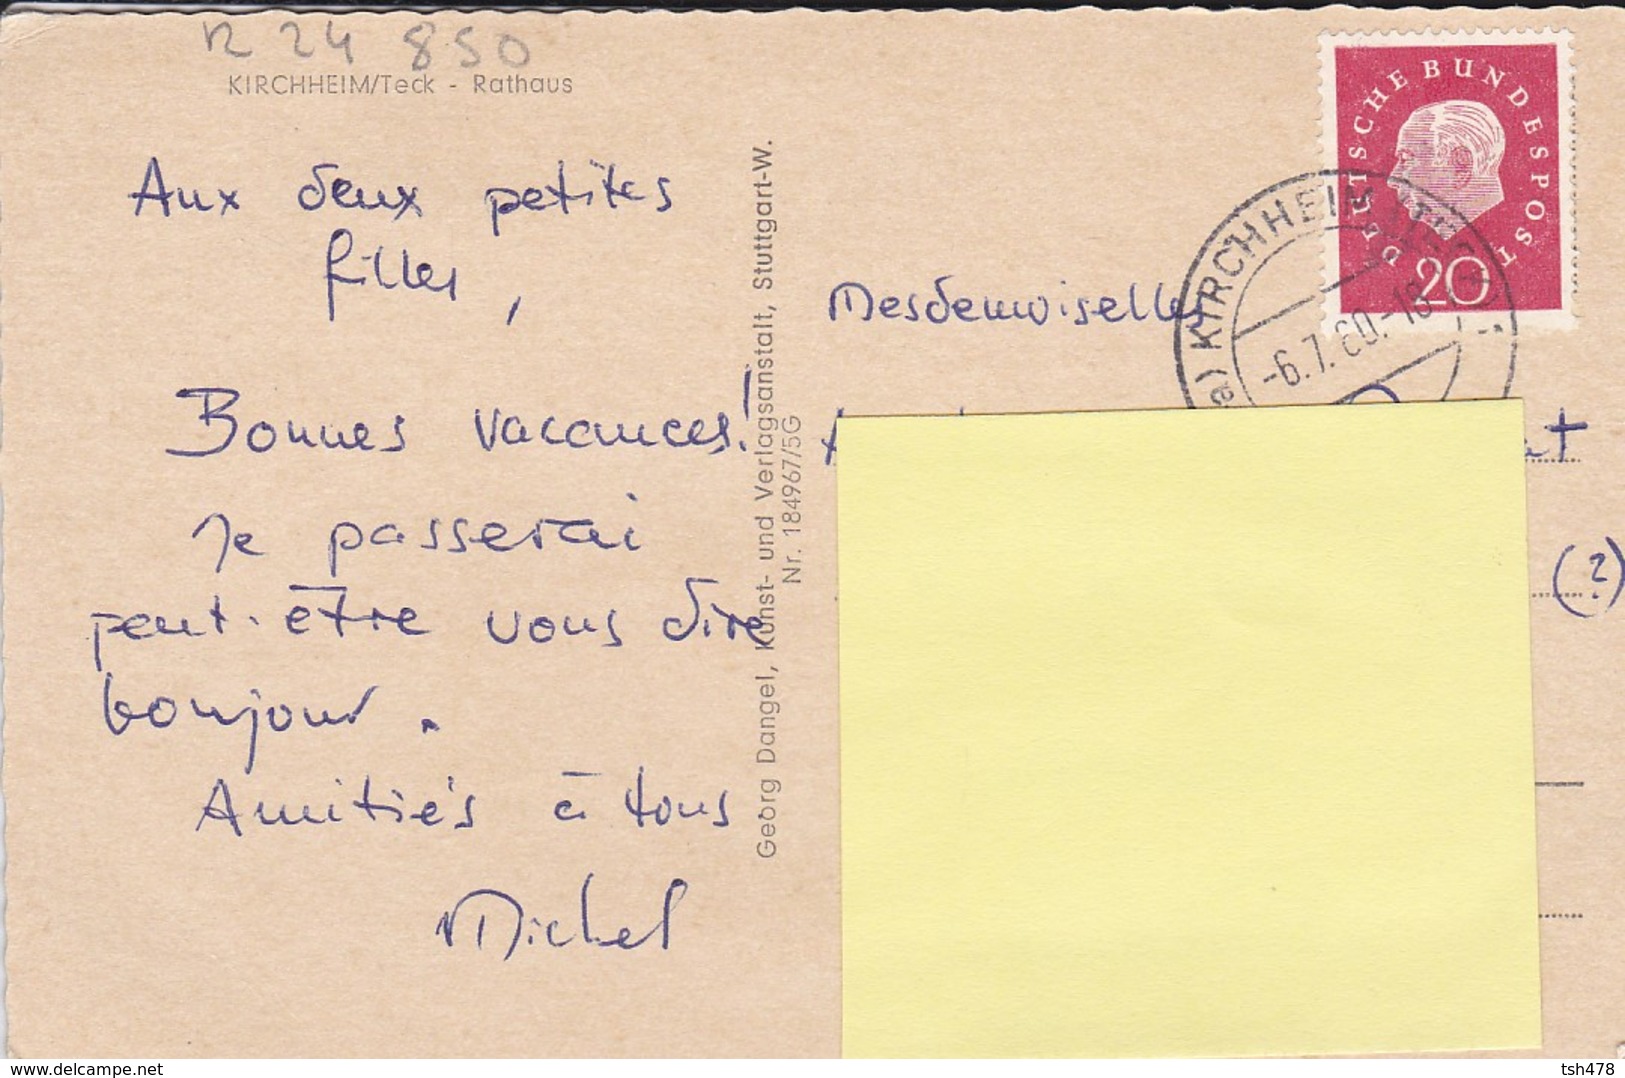 R 24 850
KIRCHHEIM/Teck - Rathaus
Aux deux petites
filles,
Bonnes vacances!
Je passerai
peut-être vous dire
bonjour.
Amitiés à tous
Michel
Georg Dangel, Kunst- und Verlagsanstalt, Stuttgart-W.
Nr. 184967/5G
DEUTSCHE BUNDESPOST
20
KIRCHHEIM (TECK)
-6.7.60.-18
Mesdemoiselles
(?)
delcampe.net
tsh478